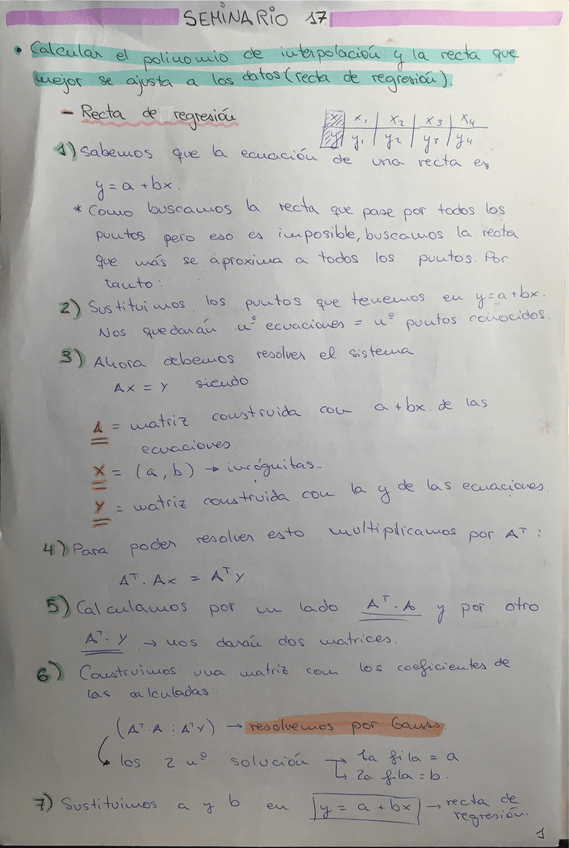 SEMINARIO 17
• Calcular el polinomio de interpolación y la recta que
mejor se ajusta a los datos (recta de regresión)
- Recta de regresión
x | x₁ | x₂ | x₃ | x₄
y | y₁ | y₂ | y₃ | y₄
1) Sabemos que la ecuación de una recta es
y = a + bx.
* Como buscamos la recta que pase por todos los
puntos pero eso es imposible, buscamos la recta
que más se aproxima a todos los puntos. Por
tanto:
2) Sustituimos los puntos que tenemos en y = a + bx.
Nos quedarán nº ecuaciones = nº puntos conocidos.
3) Ahora debemos resolver el sistema
Ax = y siendo
A = matriz construida con a + bx de las
ecuaciones.
X = (a, b) → incógnitas.
Y = matriz construida con la y de las ecuaciones.
4) Para poder resolver esto multiplicamos por Aᵀ:
Aᵀ · Ax = Aᵀ y
5) Calculamos por un lado Aᵀ · A y por otro
Aᵀ · y → nos darán dos matrices.
6) Construimos una matriz con los coeficientes de
las calculadas:
(Aᵀ · A ¦ Aᵀ y) → resolvemos por Gauss.
los 2 nº solución → 1a fila = a
↳ 2a fila = b.
7) Sustituimos a y b en y = a + bx → recta de
regresión.
1